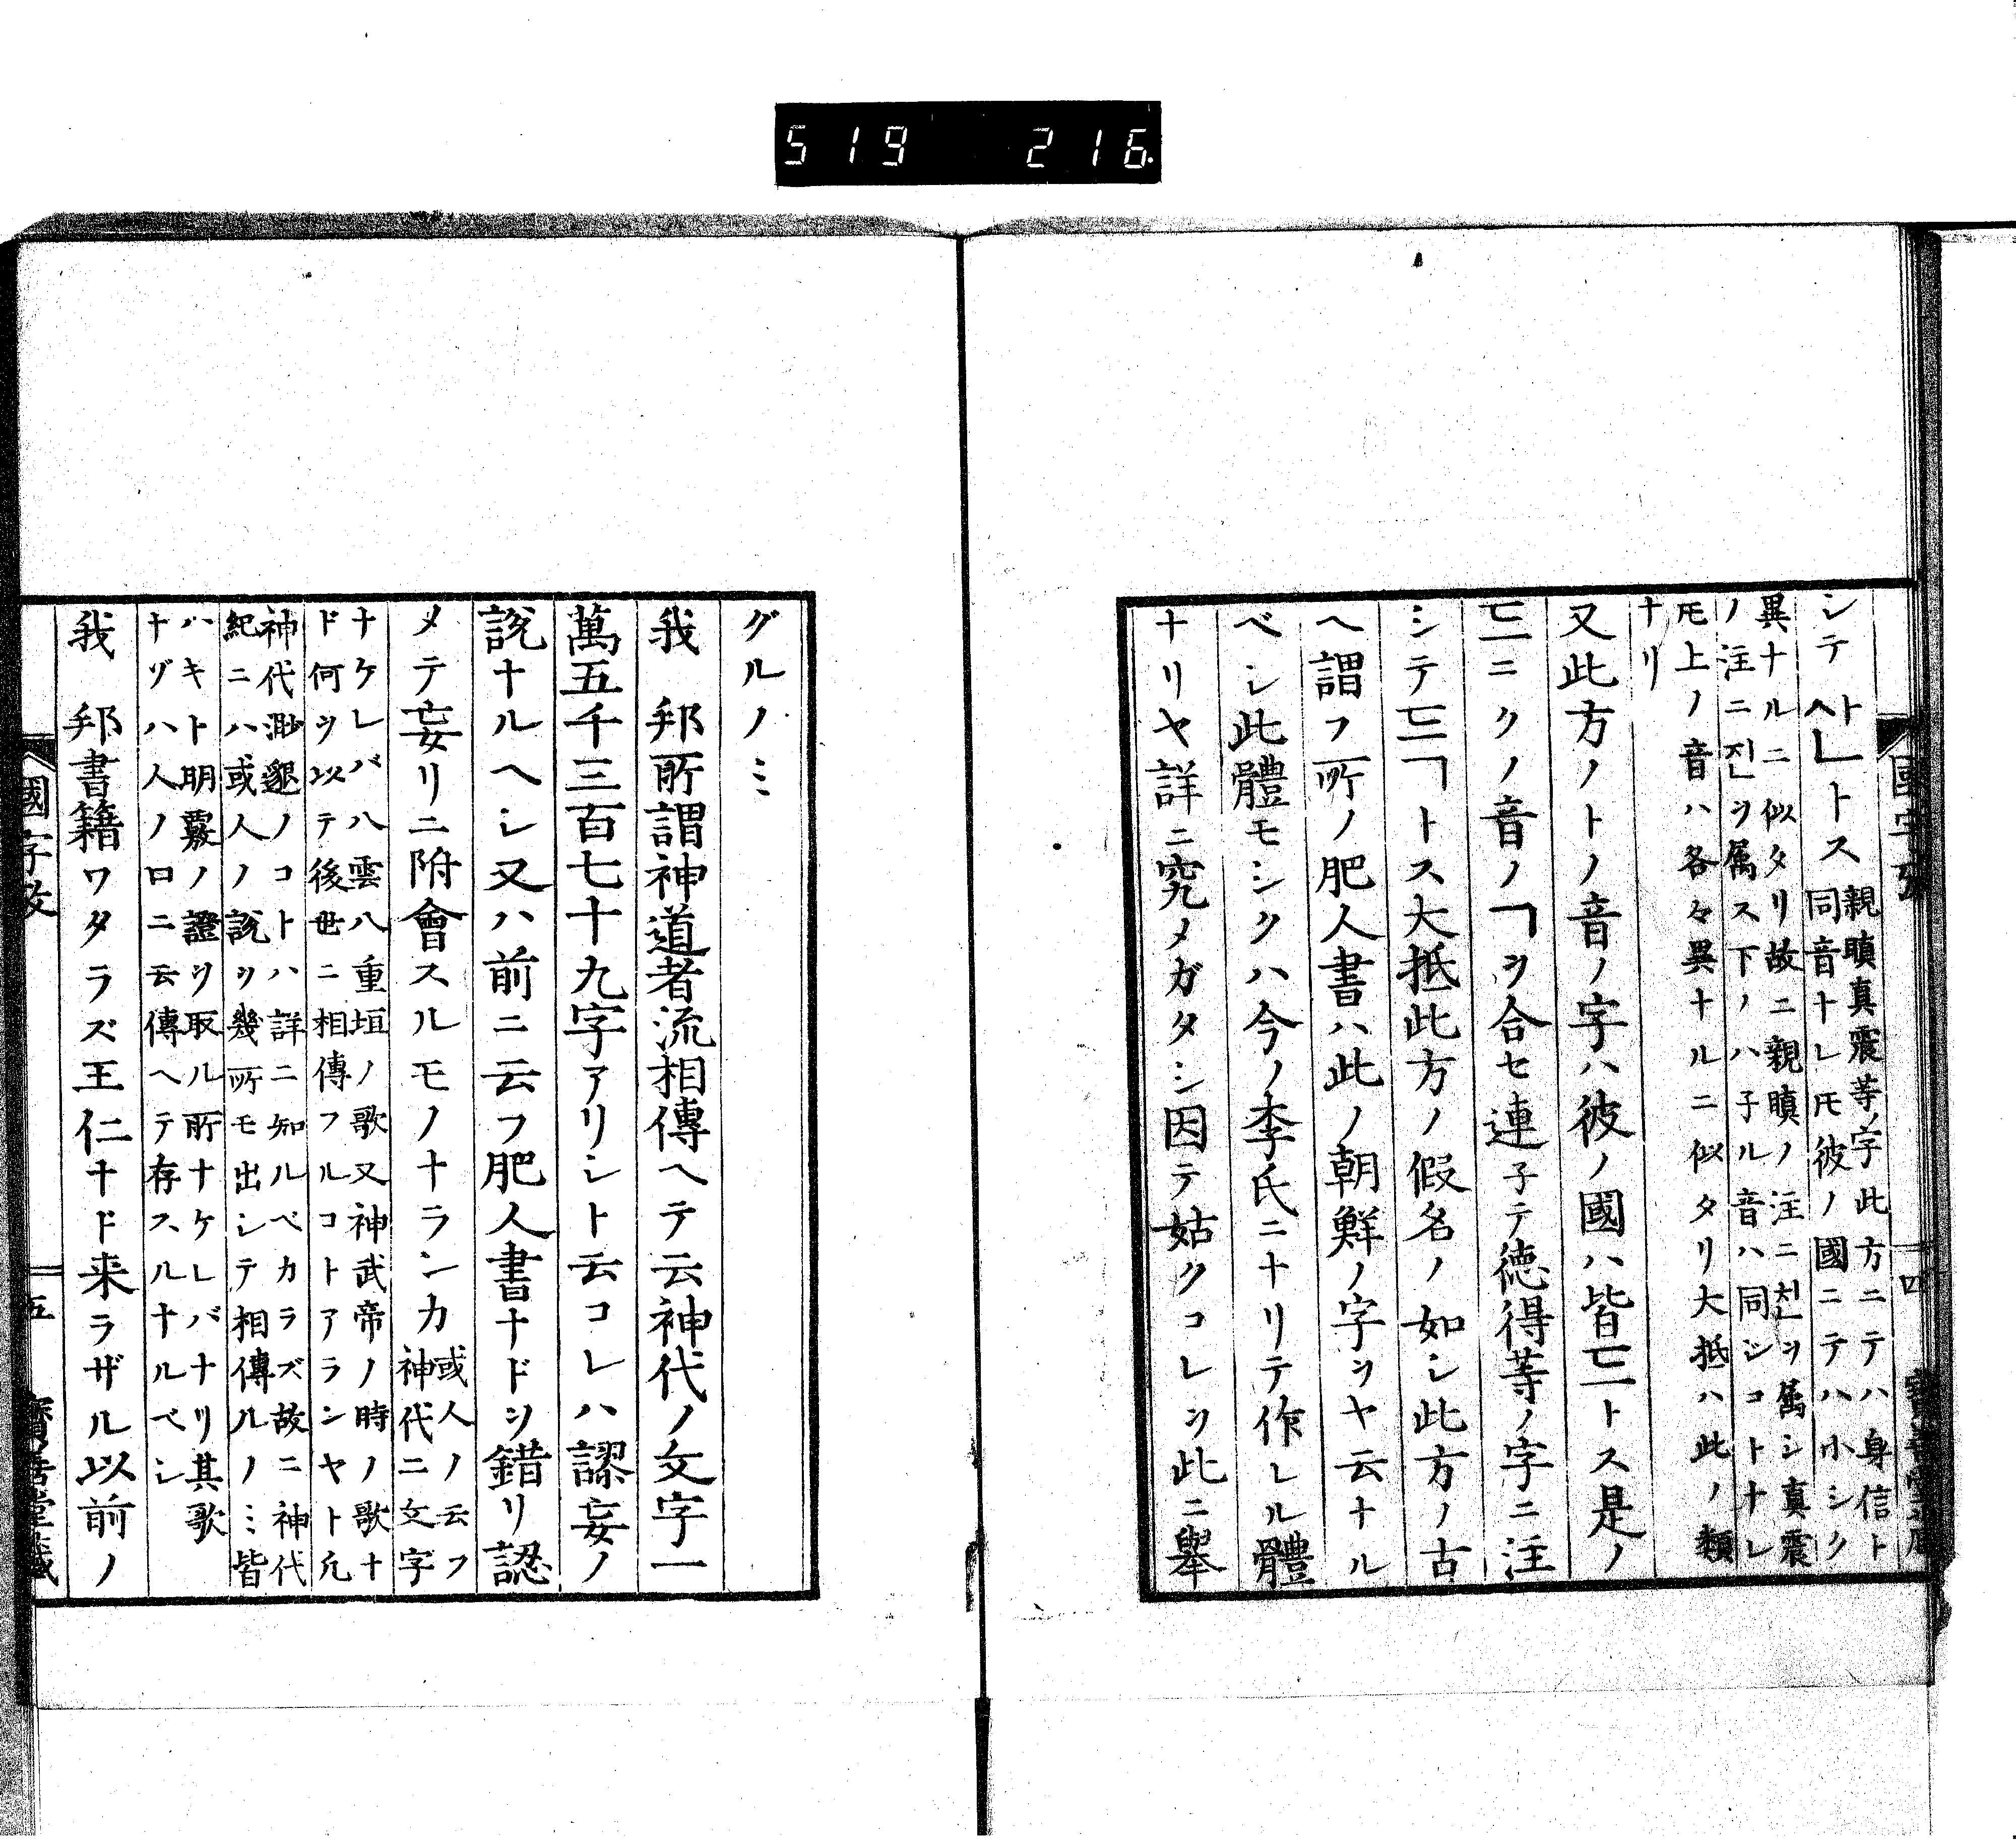 519 216.
シテ 사ㅅㄴトス 親瞋真震等ノ字此方ニテハ身信ト
同音ナレ𪜈彼ノ國ニテハ小シク
異ナルニ似タリ故ニ親瞋ノ注ニ친ヲ属シ真震
ノ注ニ진ヲ属ス下ノハ子ル音ハ同ジコトナレ
𪜈上ノ音ハ各々異ナルニ似タリ大抵ハ此ノ類
ナリ
又此方ノトノ音ノ字ハ彼ノ國ハ皆드トス是ノ
드ニクノ音ノㄱヲ合セ連子テ德得等ノ字ニ注
シテ드ㄱトス大抵此方ノ假名ノ如シ此方ノ古
ヘ謂フ所ノ肥人書ハ此ノ朝鮮ノ字ヲヤ云ナル
ベシ此體モシクハ今ノ李氏ニナリテ作レル體
ナリヤ詳ニ究メガタシ因テ姑クコレヲ此ニ舉
グルノミ
我 邦所謂神道者流相傳ヘテ云神代ノ文字一
萬五千三百七十九字アリシト云コレハ謬妄ノ
說ナルヘシ又ハ前ニ云フ肥人書ナドヲ錯リ認
メテ妄リニ附會スルモノナランカ 或人ノ云フ
神代ニ文字
ナケレバ八雲八重垣ノ歌又神武帝ノ時ノ歌ナ
ド何ヲ以テ後世ニ相傳フルコトアランヤト凢
神代渺邈ノコトハ詳ニ知ルベカラズ故ニ神代
紀ニハ或人ノ說ヲ幾所モ出シテ相傳ルノミ皆
ハキト明覈ノ證ヲ取ル所ナケレバナリ其歌
ナヅハ人ノ口ニ云傳ヘテ存スルナルベシ
我 邦書籍ワタラズ王仁ナド来ラザル以前ノ
國字攷
五
寶善堂藏